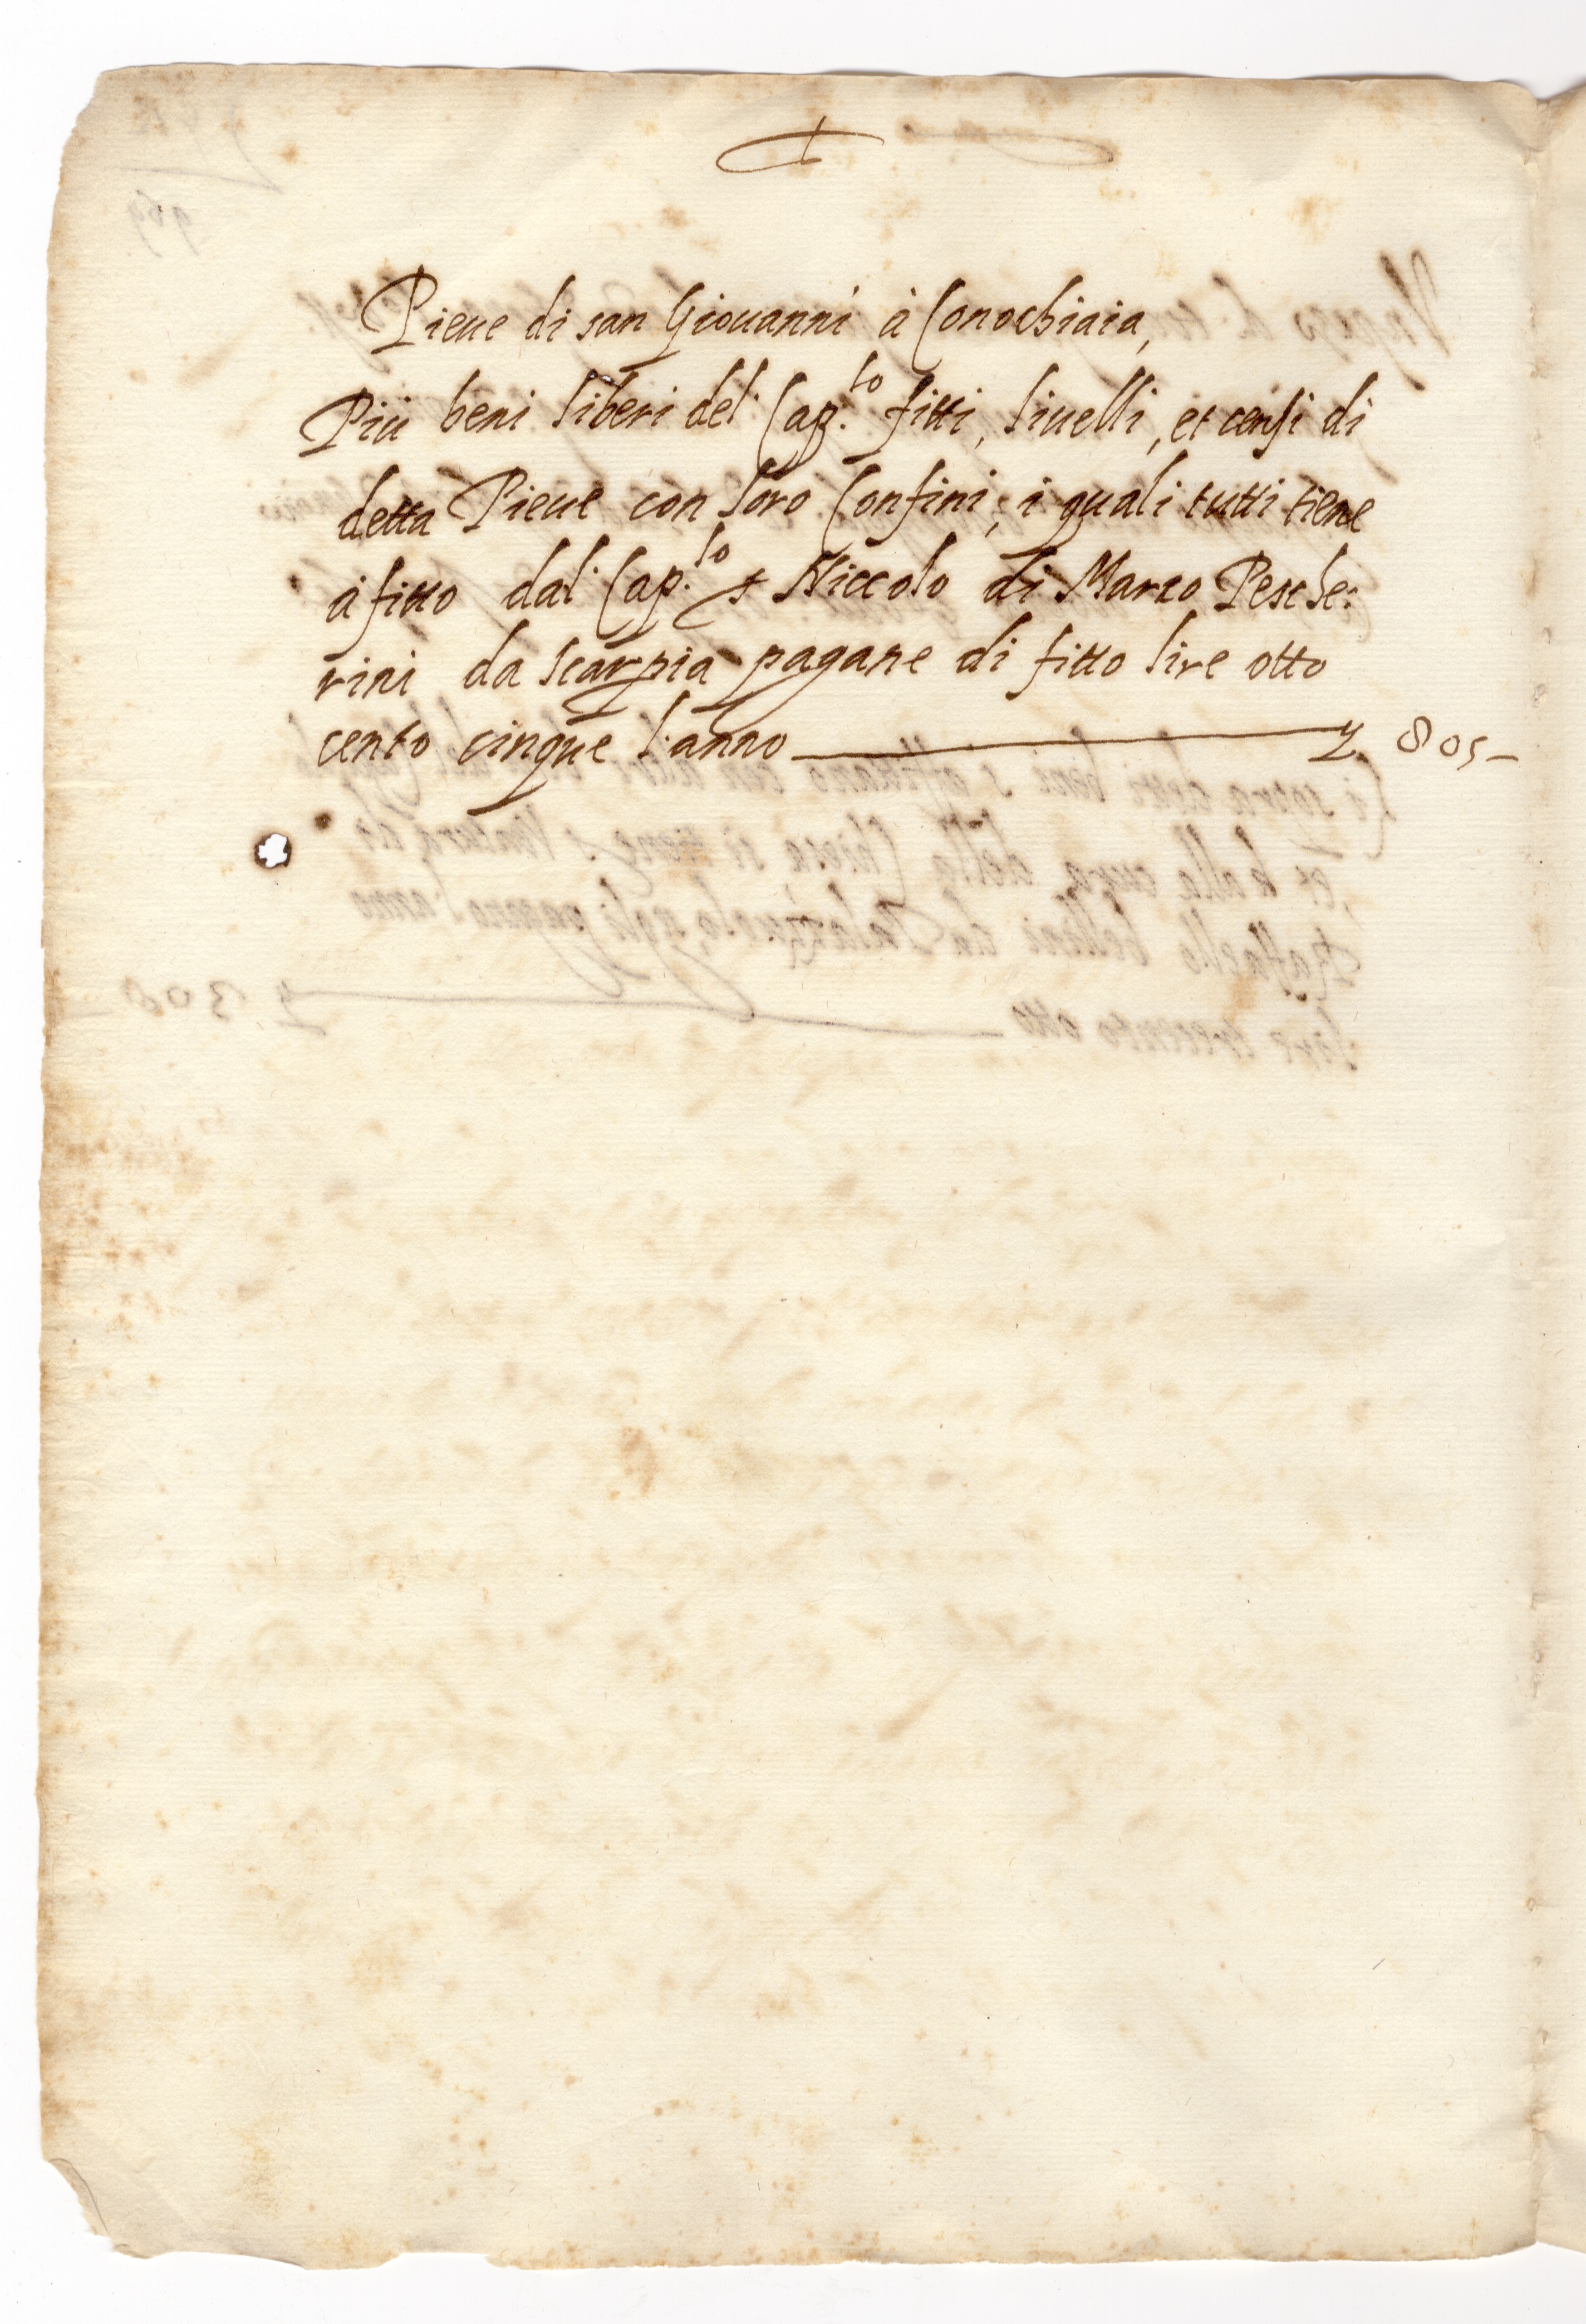 Pieue di san Giouanni à Conochiaia,
Più beni liberi del Cap.lo fitti, liuelli, et censi di
detta Pieue con loro Confini, i quali tutti tiene
à fitto dal Cap.lo s Niccolo di Marco Pesche:
rini da Scarpia pagane di fitto lire otto
cento cinque l'anno — L 805 —